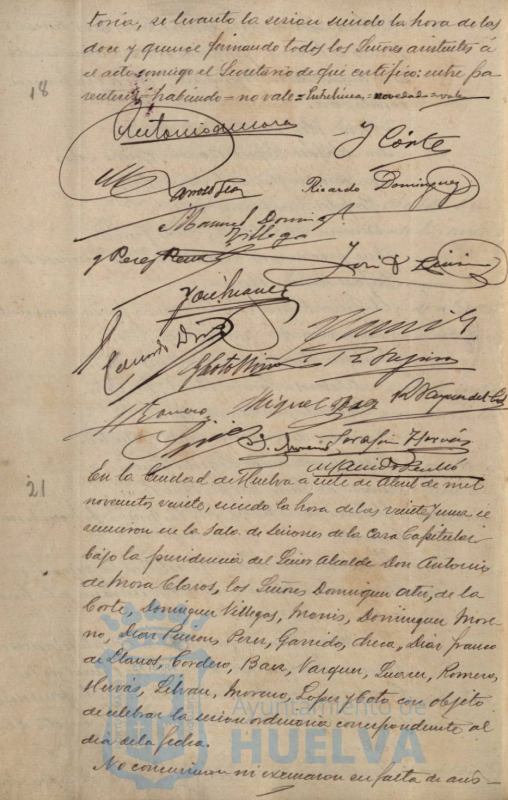 toria, se levanto la sesion siendo la hora de las
doce y quince firmando todos los Señores asistentes á
el acto conmigo el Secretario de que certifico: entre pa
rentesis = habiendo = no vale = Entrelineas = novedad = vale
18
Antonio de Mora
Y Córte
Ricardo Dominguez
Manuel Doming
Villega
y Perez
José
Eduardo Diaz
Romero Miguel Baez P. Vazquez del
J. Moreno Serafin Hervás
21
En la Ciudad de Huelva a siete de Abril de mil
novecientos veinte, siendo la hora de las veinte y una se
reunieron en la Sala de Sesiones de la Casa Capitular
bajo la presidencia del Señor Alcalde Don Antonio
de Mora Claros, los Señores Dominguez Ortiz, de la
Corte, Dominguez Villegas, Monis, Dominguez More
no, Diaz Perez, Garrido, Checa, Diaz Franco
de Llanos, Cordero, Baez, Vazquez, Suarez, Romero,
Hervás, Silvan, Moreno, Lopez y Coto con objeto
de celebrar la sesion ordinaria correspondiente al
dia de la fecha.
Ayuntamiento de
HUELVA
No concurrieron ni excusaron su falta de asis-